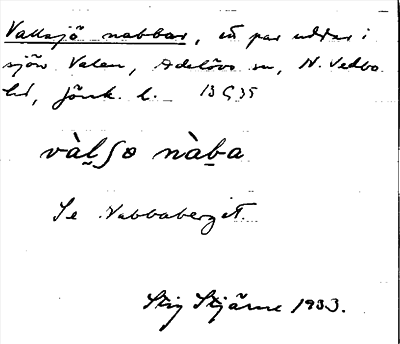 Vallsjö nabbar, ett par uddar i
sjön Valen, Adelövs sn, N. Vedbo
hd, Jönk. l. 13 G 35
vàḻʃo nàḇa
Se Nabbaberget.
Stig Stjärne 1933.